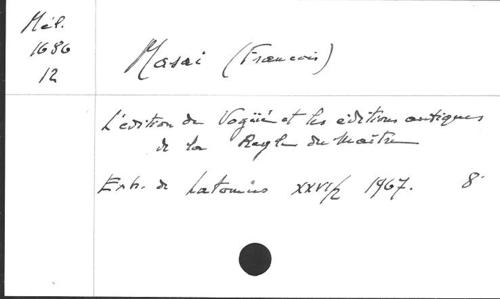 Mél.
1686
12
Masai (Francois)
L'édition de Vogüé et les éditions antiques
de la Regle du Maître
Extr. de Latomus XXVI/2 1967. 8°